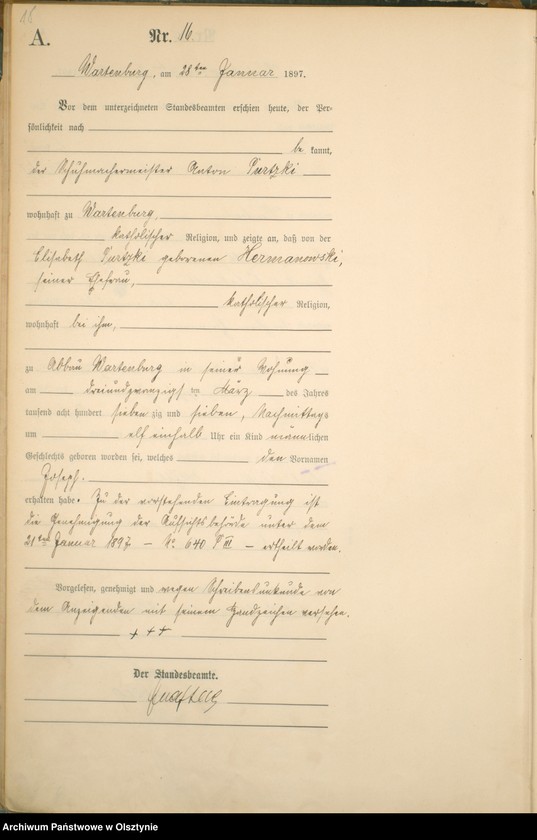 16
A.
Nr. 16
Wartenburg, am 28ten Januar 1897.
Vor dem unterzeichneten Standesbeamten erschien heute, der Per-
sönlichkeit nach
be kannt,
der Schuhmachermeister Anton Purtzki
wohnhaft zu Wartenburg,
katholischer Religion, und zeigte an, daß von der
Elisabeth Purtzki geborenen Hermanowski,
seiner Ehefrau,
katholischer Religion,
wohnhaft bei ihm,
zu Abbau Wartenburg in seiner Wohnung
am dreiundzwanzigsten März des Jahres
tausend acht hundert sieben zig und sieben, Nachmittags
um elf einhalb Uhr ein Kind männlichen
Geschlechts geboren worden sei, welches den Vornamen
Joseph.
erhalten habe. Zu der vorstehenden Eintragung ist
die Genehmigung der Aufsichtsbehörde unter dem
21ten Januar 1897 – No 640 P III – ertheilt worden.
Vorgelesen, genehmigt und wegen Schreibensunkunde von
dem Anzeigenden mit seinem Handzeichen versehen.
+ + +
Der Standesbeamte.
Archiwum Państwowe w Olsztynie